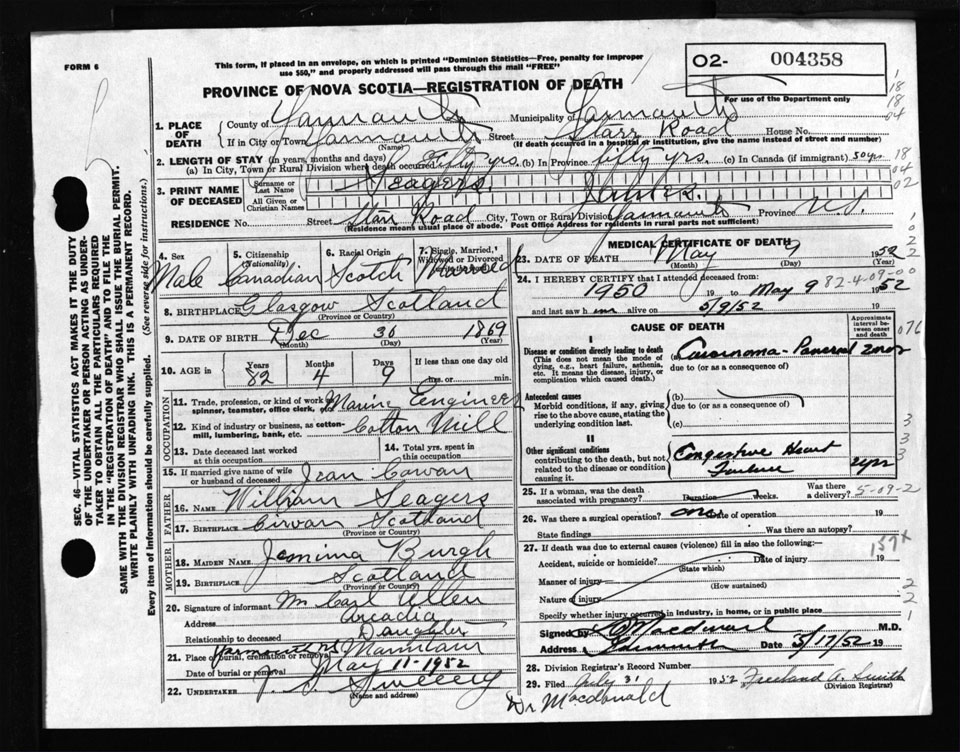 FORM 6
This form, if placed in an envelope, on which is printed "Dominion Statistics—Free, penalty for improper
use $50," and properly addressed will pass through the mail "FREE"
O2- 004358
For use of the Department only
PROVINCE OF NOVA SCOTIA—REGISTRATION OF DEATH
1. PLACE OF DEATH { County of Yarmouth Municipality of Yarmouth
If in City or Town Yarmouth (Name) Street Starr Road House No.
(If death occurred in a hospital or institution, give the name instead of street and number)
2. LENGTH OF STAY (in years, months and days)
(a) In City, Town or Rural Division where death occurred fifty yrs. (b) In Province fifty yrs. (c) In Canada (if immigrant) 50 yrs
3. PRINT NAME OF DECEASED { Surname or Last Name Seagers
All Given or Christian Names James.
RESIDENCE No. Street Starr Road City, Town or Rural Division Yarmouth Province N.S.
(Residence means usual place of abode. Post Office Address for residents of rural parts not sufficient)
4. Sex Male
5. Citizenship (Nationality) Canadian
6. Racial Origin Scotch
7. Single, Married, Widowed or Divorced
8. BIRTHPLACE Glasgow Scotland
(Province or Country)
9. DATE OF BIRTH Dec 30 1869
(Month) (Day) (Year)
10. AGE in { Years 82 Months 4 Days 9 If less than one day old
hrs. or min.
OCCUPATION
11. Trade, profession, or kind of work as spinner, teamster, office clerk, etc. Marine Engineer
12. Kind of industry or business, as cotton-mill, lumbering, bank, etc. Cotton Mill
13. Date deceased last worked at this occupation
14. Total yrs. spent in this occupation
15. If married give name of wife or husband of deceased Jean Cowan
FATHER
16. NAME William Seagers
17. BIRTHPLACE Scotland
(Province or Country)
MOTHER
18. MAIDEN NAME Jemima Burgh
19. BIRTHPLACE Scotland
(Province or Country)
20. Signature of informant Mrs Carl Allen
Address Arcadia
Relationship to deceased Daughter
21. Place of burial, cremation or removal Yarmouth NS Mountain
Date of burial or removal May 11-1952
22. UNDERTAKER Sweeny
(Name and address)
MEDICAL CERTIFICATE OF DEATH
23. DATE OF DEATH May 9 1952
(Month) (Day) (Year)
82-4-09-00
24. I HEREBY CERTIFY that I attended deceased from:
1950 19 to May 9 1952
and last saw him alive on 5/9/52 19
CAUSE OF DEATH
Approximate interval between onset and death
I
Disease or condition directly leading to death
(This does not mean the mode of dying, e.g., heart failure, asthenia, etc. It means the disease, injury, or complication which caused death.)
(a) Carcinoma-Pancreas 2 mos
due to (or as a consequence of)
Antecedent causes
Morbid conditions, if any, giving rise to the above cause, stating the underlying condition last.
(b)
due to (or as a consequence of)
(c)
II
Other significant conditions
contributing to the death, but not related to the disease or condition causing it.
Congestive Heart Failure 2 yrs
25. If a woman, was the death associated with pregnancy? Duration weeks. Was there a delivery?
5-09-2
26. Was there a surgical operation? Date of operation
State findings Was there an autopsy?
27. If death was due to external causes (violence) fill in also the following:—
Accident, suicide or homicide? (State which) Date of injury
157x
Manner of injury (How sustained)
Nature of injury
Specify whether injury occurred in industry, in home, or in public place
Signed by Macdonald M.D.
Address Yarmouth Date 5/17/52 19
28. Division Registrar's Record Number
29. Filed July 31 1952 Freeland A. Smith
(Division Registrar)
Dr Macdonald
SEC. 46—VITAL STATISTICS ACT MAKES IT THE DUTY
OF THE UNDERTAKER OR PERSON ACTING AS UNDERTAKER
TO OBTAIN ALL THE PARTICULARS REQUIRED
IN THE "REGISTRATION OF DEATH" AND TO FILE THE
SAME WITH THE DIVISION REGISTRAR WHO SHALL ISSUE THE BURIAL PERMIT.
WRITE PLAINLY WITH UNFADING INK. THIS IS A PERMANENT RECORD.
Every item of information should be carefully supplied. (See reverse side for instructions.)